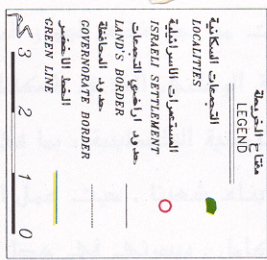 مفتاح الخريطة
LEGEND
التجمعات السكانية
LOCALITIES
المستعمرات الاسرائيلية
ISRAELI SETTLEMENT
حدود اراضي التجمعات
LAND'S BORDER
حدود المحافظة
GOVERNORATE BORDER
الخط الاخضر
GREEN LINE
3 2 1 0